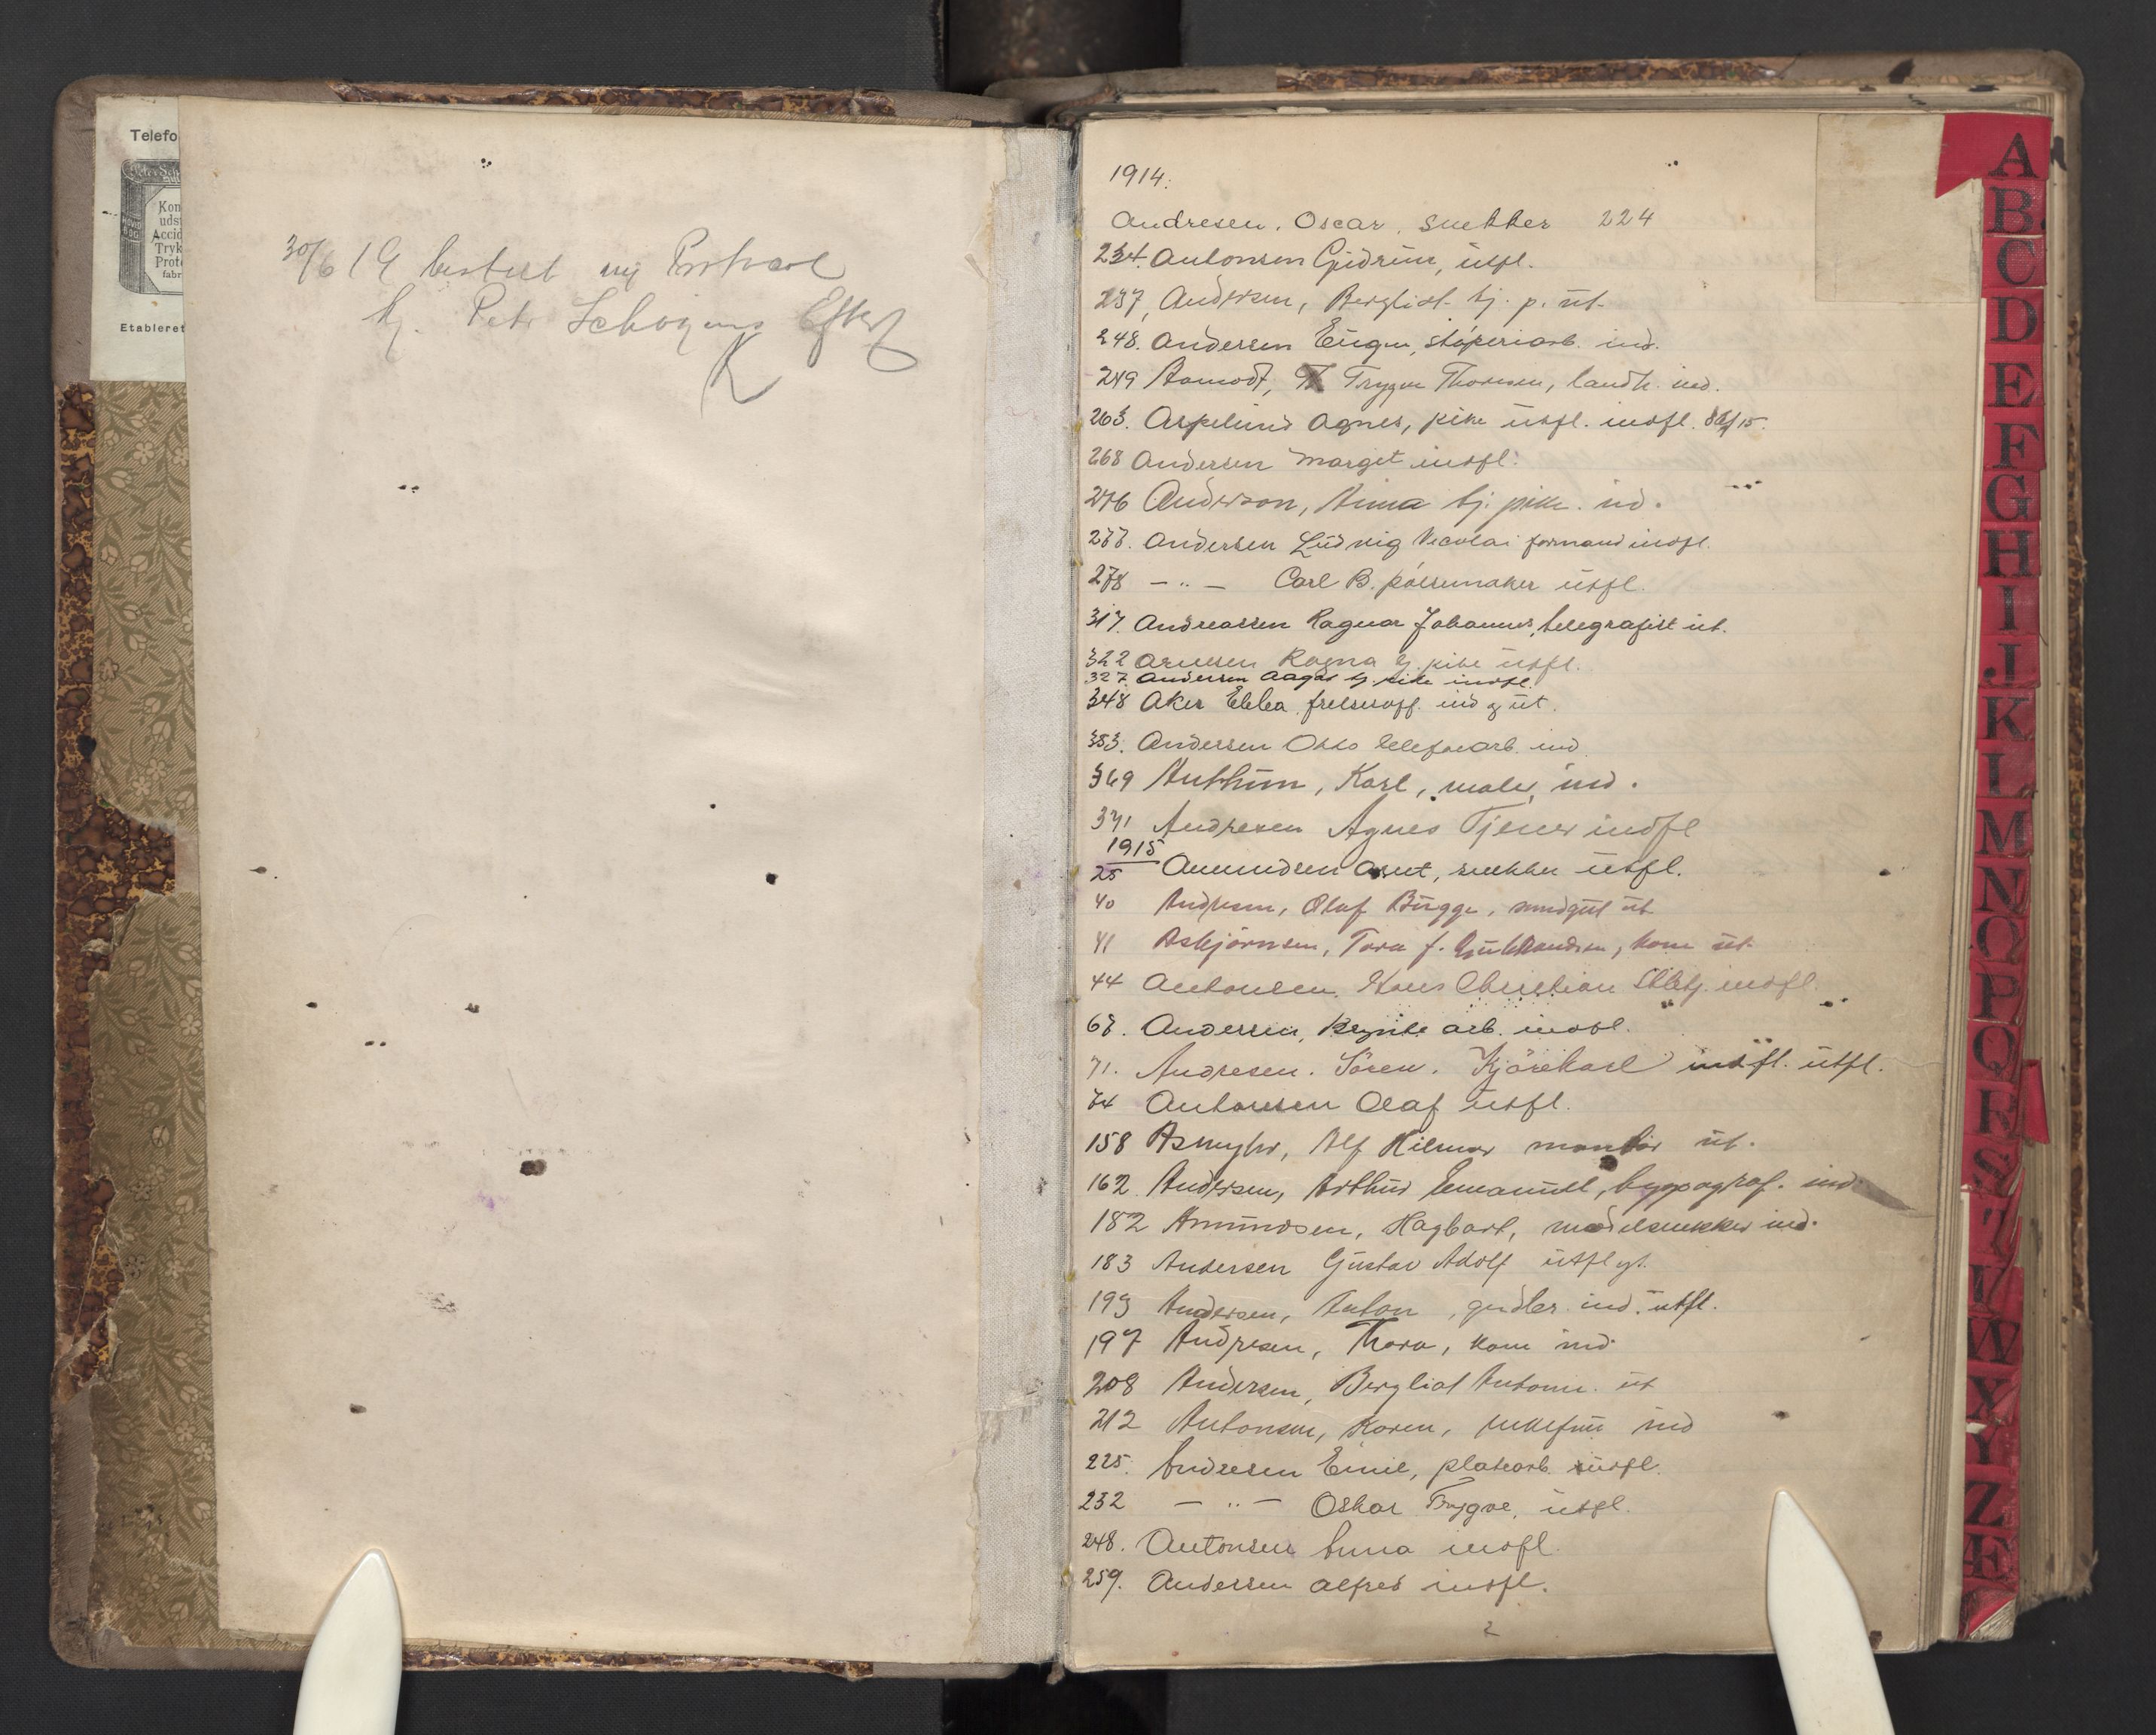 Telefo
Kon
uds
Accid
Tryk
Prot
fabr
Etableret
30/6 19 bestilt ny Protocol
hj. Peter Schøyens Eftf
K
1914.
Andresen, Oscar, snekker 224
234. Antonsen Gudrun, utfl.
237, Andersen, Bergliot tj. p. ut.
248. Andersen Eugen, støperiarb. ind.
249 Aamodt, Trygve Thoresen, landh. ind.
263. Aspelund Agnes, pike utfl. indfl.
268 Andersen Marget indfl.
276 Anderson, Anna tj. pike. ind.
277. Andersen Ludvig Nicolai formand indfl.
278 – „ – Carl B. pølsemaker utfl.
317. Andreassen Ragnar Johannes, telegrafist ut.
322 Arnesen Ragna tj. pike utfl.
327. Andersen Aagot tj. pike indfl.
348 Aker Ebba frelsesoff. ind og ut.
353. Andersen Otto telefonarb. ind.
369 Anthun, Karl, maler, ind.
371 Andresen Agnes Tjener indfl
1915
25 Amundsen Arnt, snekker utfl.
40 Andresen, Olaf Bugge, ut
41 Asbjørnsen, Tora f. Gulbrandsen, kone ut.
44 Antonsen, Hans Christian indfl.
67. Andersen, arb. indfl.
71. Andresen. Sören. Kjörekarl indfl. utfl.
74 Antonsen Olaf utfl.
158 Asmyhr, Alf Hilmar montør ut.
162. Andersen, Arthur Emanuel, typograf. ind
182 Amundsen, Hagbart, modelsnekker ind.
183 Andersen Gustav Adolf utfl
193 Andersen, Anton, gjørtler ind. utfl.
197 Andresen, Thora, kone ind.
208 Andersen, Bergliot Antonie. ut
212 Antonsen, Karen, enkefru ind
225. Andresen Emil, platearb. utfl.
232 – „ – Oskar Trygve, utfl.
248. Antonsen Anna indfl.
259. Andersen Alfred indfl.
2
A
B
C
D
E
F
G
H
I
J
K
L
M
N
O
P
Q
R
S
T
W
X
Y
Z
Æ